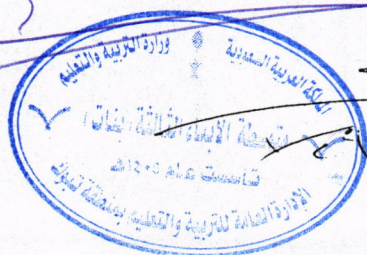 المملكة العربية السعودية
وزارة التربية والتعليم
متوسطة الأبناء الثالثة (بنات)
تأسست عام ١٤٠٩هـ
الإدارة العامة للتربية والتعليم بمنطقة تبوك